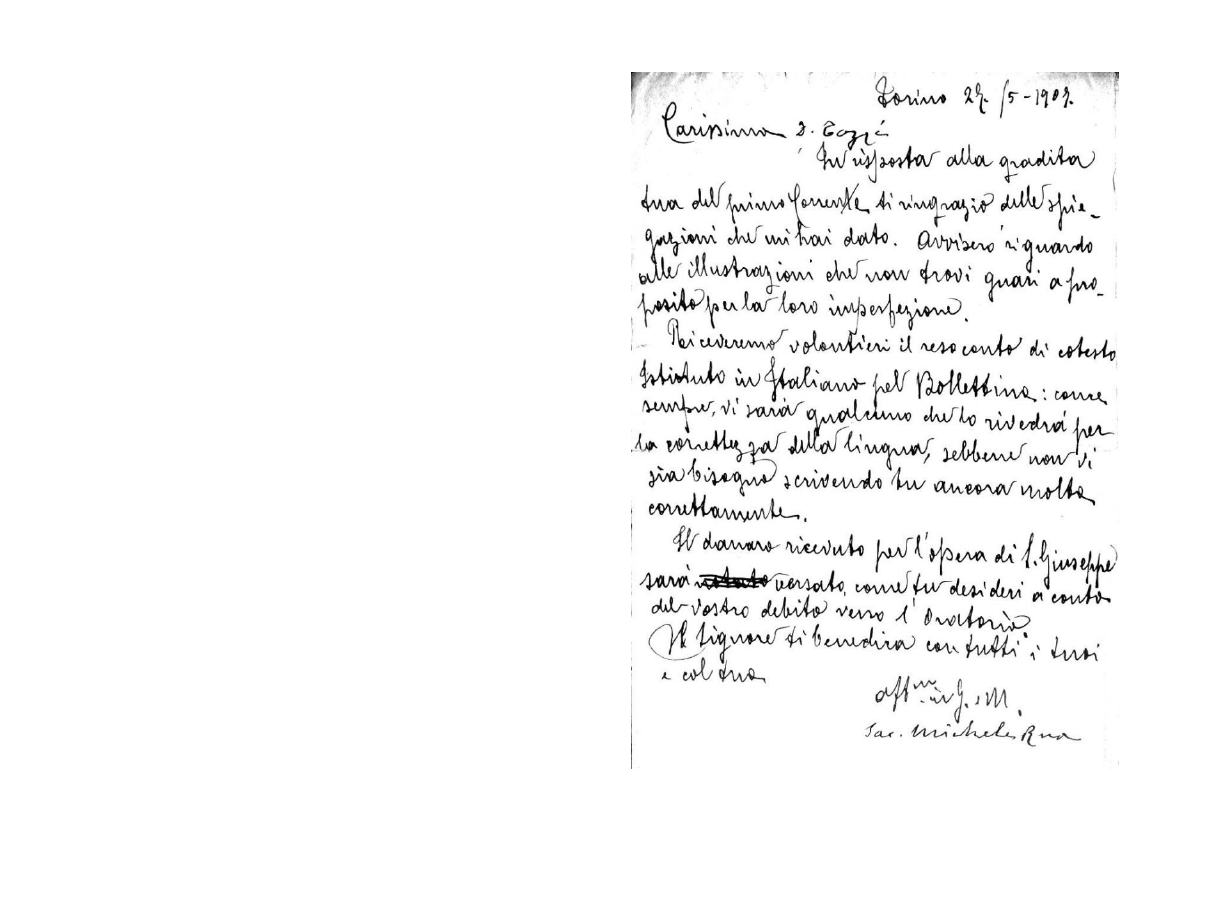 Torino 27/5-1907.
Carissimo D. Cogg
In risposta alla gradita
tua del primo Corrente, ti ringrazio delle spie-
gazioni che mi hai dato. Avviserò riguardo
alle illustrazioni che non trovi guari a pro-
posito per la loro imperfezione.
Riceveremo volontieri il resoconto di cotesto
Istituto in Italiano pel Bollettino: come
sempre, vi sarà qualcuno che lo rivedrà per
la correttezza della lingua, sebbene non vi
sia bisogno scrivendo tu ancora molto
correttamente.
Il danaro ricevuto per l'opera di S. Giuseppe
sarà versato, come tu desideri a conto
del vostro debito verso l'Oratorio.
Il Signore ti benedica con tutti i tuoi
e col tuo
aff.mo in G. e M.
Sac. Michele Rua